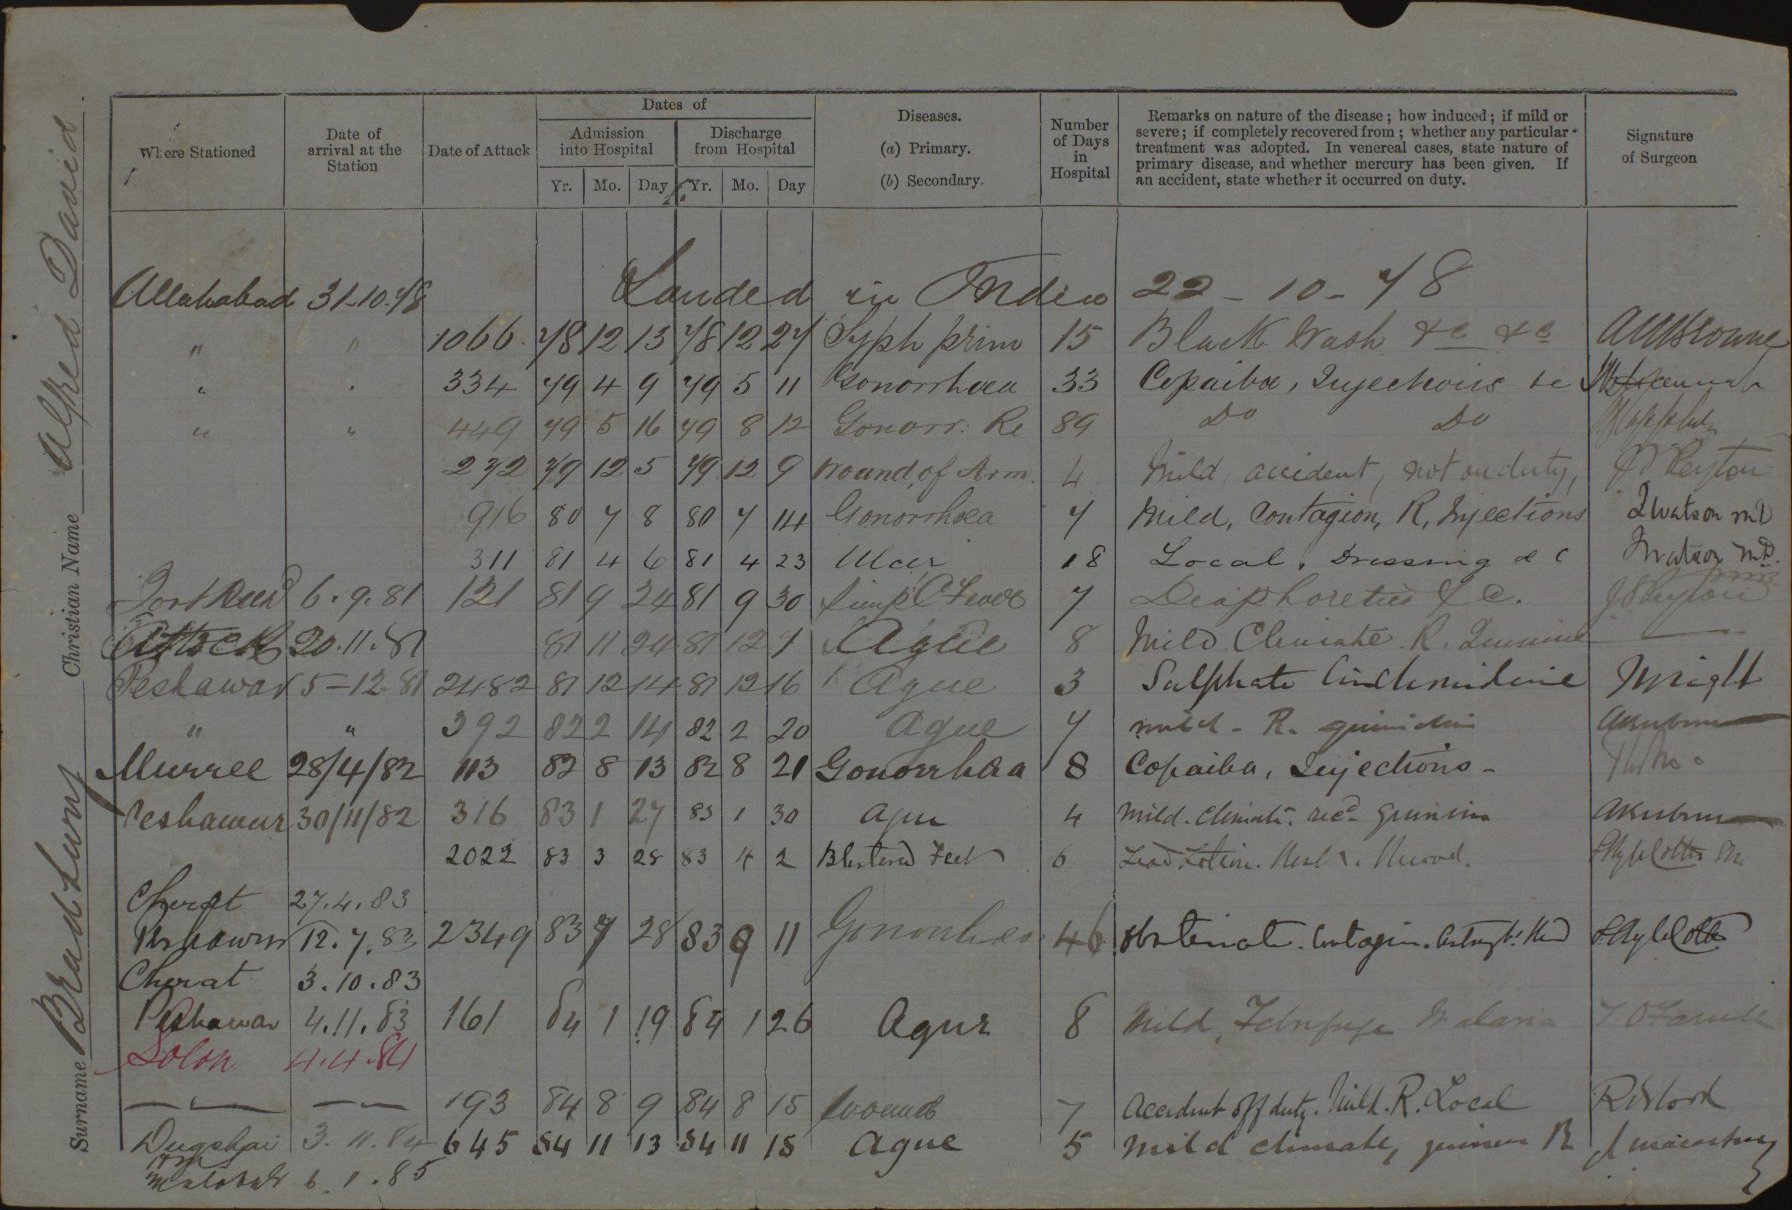 Surname Bradbury Christian Name Alfred David
Where Stationed
Date of arrival at the Station
Date of Attack
Dates of
Admission into Hospital
Discharge from Hospital
Yr. Mo. Day Yr. Mo. Day
Diseases.
(a) Primary.
(b) Secondary.
Number of Days in Hospital
Remarks on nature of the disease; how induced; if mild or
severe; if completely recovered from; whether any particular
treatment was adopted. In venereal cases, state nature of
primary disease, and whether mercury has been given. If
an accident, state whether it occurred on duty.
Signature of Surgeon
Allahabad 31.10.78 Landed in India 22-10-78
" " 1066 78 12 13 78 12 27 Syph prim 15 Black Wash &c &c
" " 334 79 4 9 79 5 11 Gonorrhoea 33 Copaiba, Injections &c
" " 449 79 5 16 79 8 12 Gonorr: Re 89 Do Do
272 79 12 5 79 12 9 Wound of Arm. 4 Mild, accident, not on duty, Peyton
916 80 7 8 80 7 14 Gonorrhoea 7 Mild, Contagion, R, Injections Watson MD
311 81 4 6 81 4 23 Ulcer 18 Local, Dressing &c Watson MD
Fort 6.9.81 121 81 9 24 81 9 30 Simp C Fever 7 Diaphoretics &c. Peyton
Attock 20.11.81 81 11 24 81 12 1 Ague 8 Mild Climate R. Quinine
Peshawar 5-12.81 2482 81 12 14 81 12 16 Ague 3 Sulphate Cinchonidine Wright
" " 392 82 2 14 82 2 20 Ague 7 mild - R.
Murree 28/4/82 113 82 8 13 82 8 21 Gonorrhoea 8 Copaiba, Injections -
Peshawur 30/11/82 316 83 1 27 83 1 30 Ague 4 Mild. Climate. rec'd quinine
2022 83 3 28 83 4 2 Blistered Feet 6 Lead Lotion.
Cherat 27.4.83
12.7.83 2349 83 7 28 83 9 11 Gonorrhoea 46 Obstinate. Contagion.
Cherat 3.10.83
Peshawar 4.11.83 161 84 1 19 84 1 26 Ague 8 Mild, Febrifuge Malaria
Solon 4.4.84
193 84 8 9 84 8 15 Wound 7 Accident off duty. Mild. R. Local
Dugshai 3.11.84 645 84 11 13 84 11 18 Ague 5 Mild climate, quinine R
6.1.85